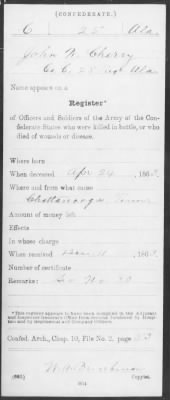 (CONFEDERATE.)
C 25 Ala.
John W. Cherry
Co. C, 25 Ala
Name appears on a
Register*
of Officers and Soldiers of the Army of the Con-
federate States who were killed in battle, or who
died of wounds or disease.
Where born
When deceased Apr 24, 1863
Where and from what cause
Chattanooga Tenn
Amount of money left
Effects
In whose charge
When received 1863
Number of certificate
Remarks:
*This register appears to have been compiled in the Adjutant
and Inspector General's Office from records furnished by Hospi-
tals and by Regimental and Company Officers.
Confed. Arch., Chap. 10, File No. 2, page 23
Copyist.